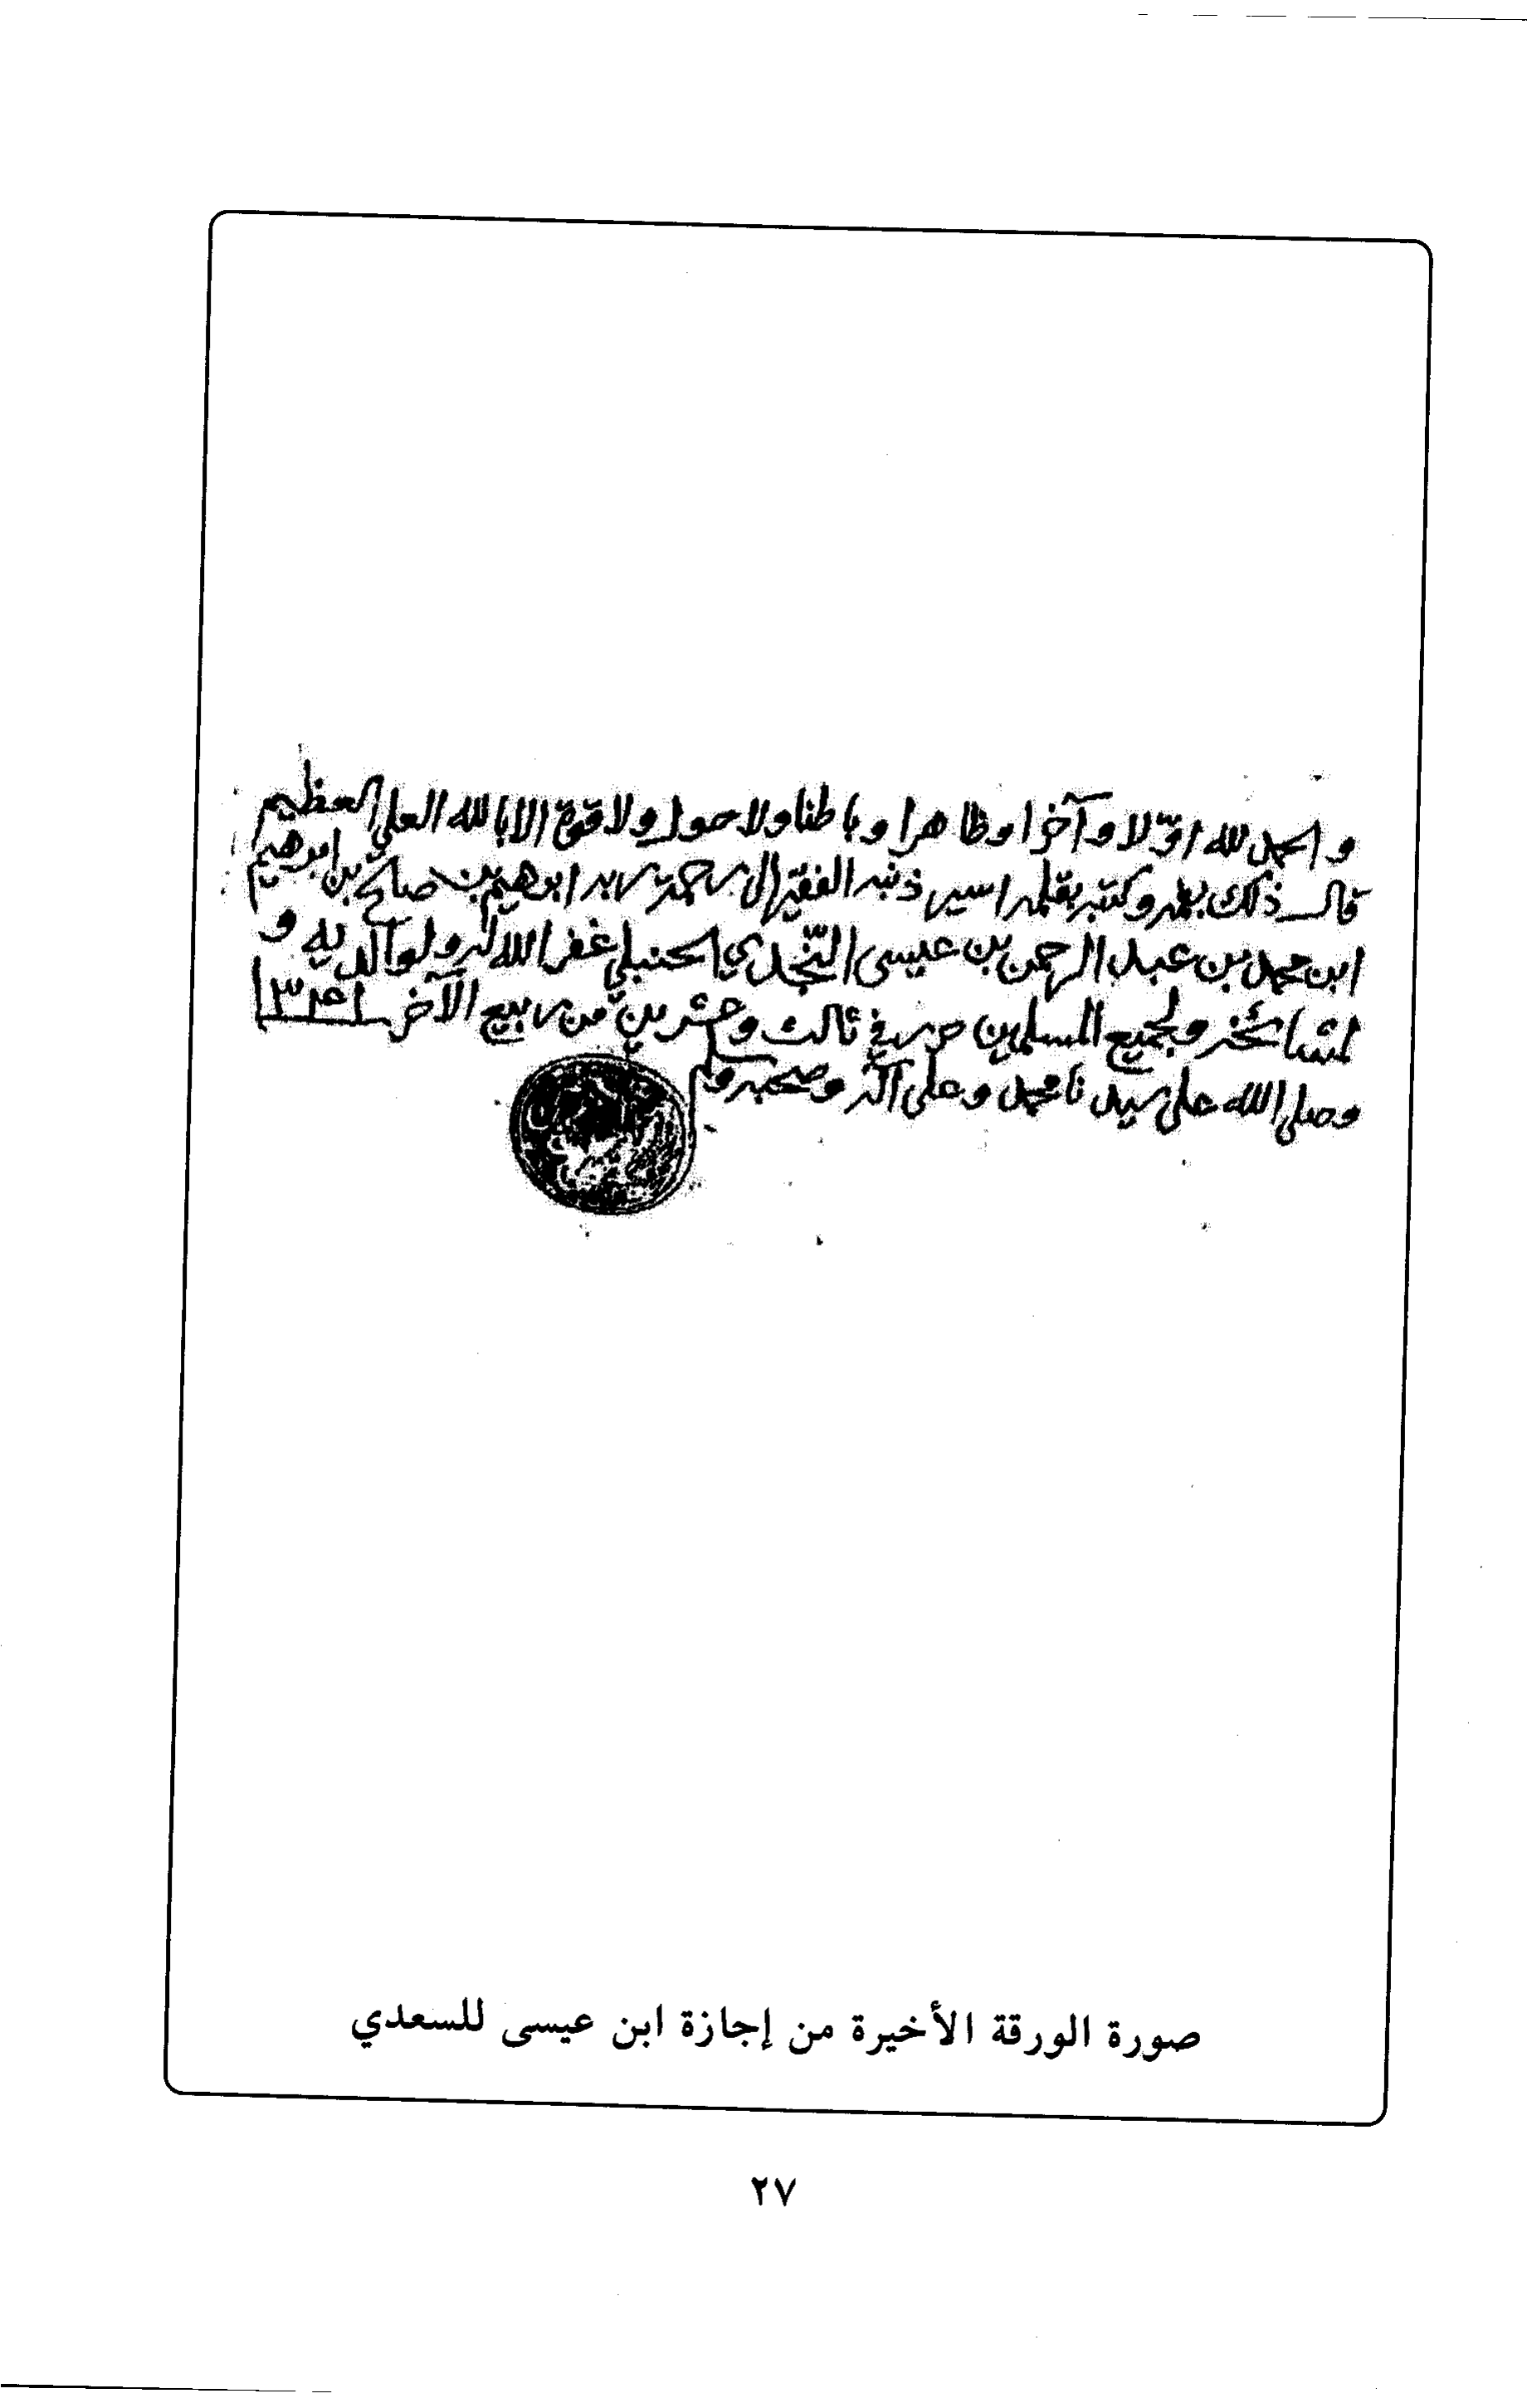 والحمد لله اوّلا وآخرا وظاهرا وباطنا ولا حول ولا قوة الا بالله العلي العظيم
قال ذلك بفمه وكتبه بقلمه اسير ذنبه الفقير الى رحمة ربه ابرهيم بن صالح بن ابرهيم
ابن محمد بن عبد الرحمن بن عيسى النّجدي الحنبلي غفر الله له ولوالديه و
لمشائخه ولجميع المسلمين حرر في ثالث وعشرين من ربيع الآخر
وصلى الله على سيدنا محمد وعلى آله وصحبه وسلم
صورة الورقة الأخيرة من إجازة ابن عيسى للسعدي
٢٧